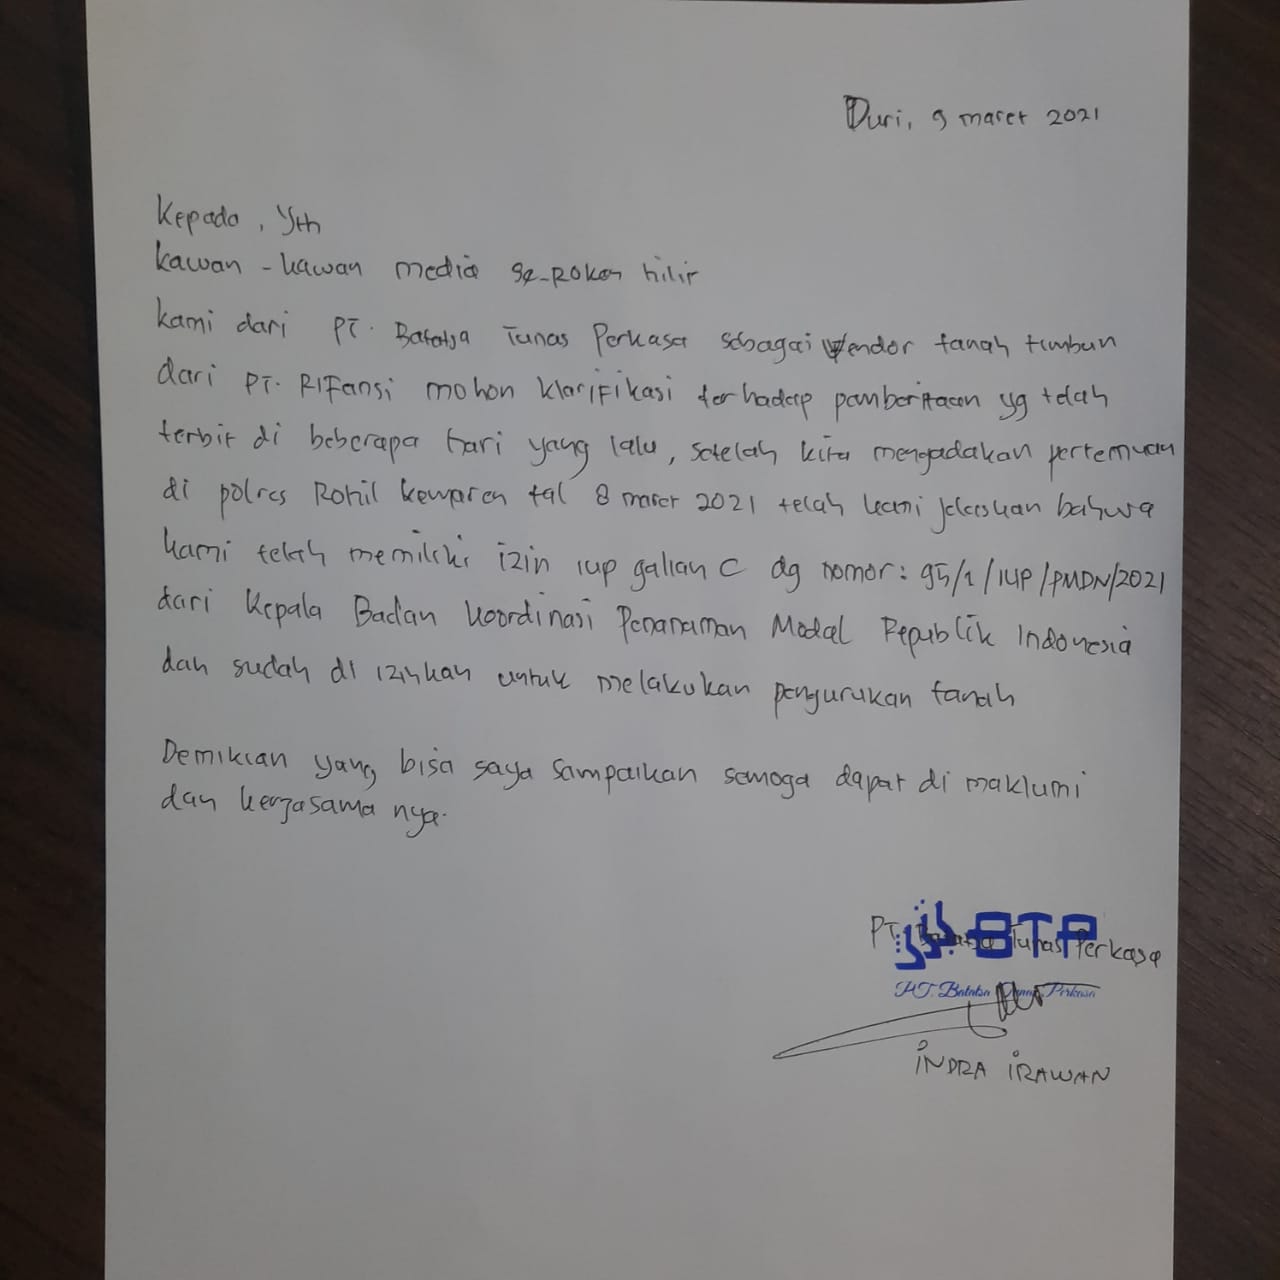 Duri, 9 maret 2021
Kepada, Yth
kawan-kawan media se-Rokan hilir
kami dari PT. Batatsa Tunas Perkasa sebagai Vendor tanah timbun
dari PT. RIFansi mohon klarifikasi terhadap pemberitaan yg telah
terbit di beberapa hari yang lalu, setelah kita mengadakan pertemuan
di polres Rohil kemaren tgl 8 maret 2021 telah kami jelaskan bahwa
kami telah memiliki izin iup galian C dg nomor: 95/1/IUP/PMDN/2021
dari Kepala Badan Koordinasi Penanaman Modal Republik Indonesia
dan sudah di izinkan untuk melakukan pengurukan tanah
Demikian yang bisa saya sampaikan semoga dapat di maklumi
dan kerjasama nya.
PT. Batatsa Tunas Perkasa
BTP
PT. Batatsa Tunas Perkasa
INDRA IRAWAN